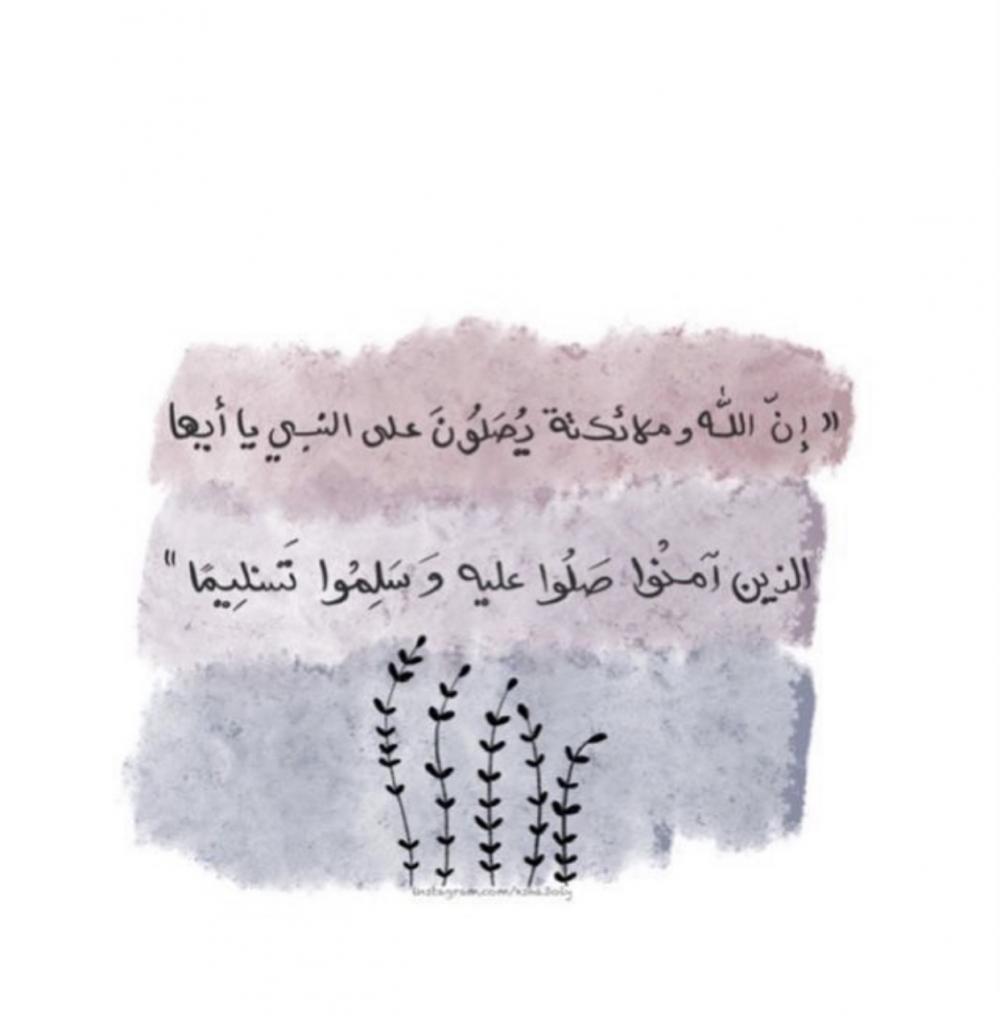 " إنّ اللّٰه و ملائكتة يُصَلُونَ على النبي يا أيها
الذين آمنُوا صَلُوا عليه وَ سَلِمُوا تَسْلِيمًا "